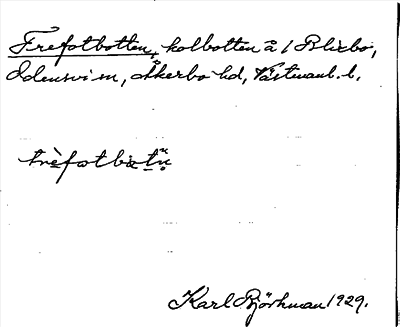 Trefotbotten, kolbotten å / Blixbo,
Odensvi sn, Åkerbo hd, Västmanl. l.
trèfotbåtn̥
Karl Björkman 1929.